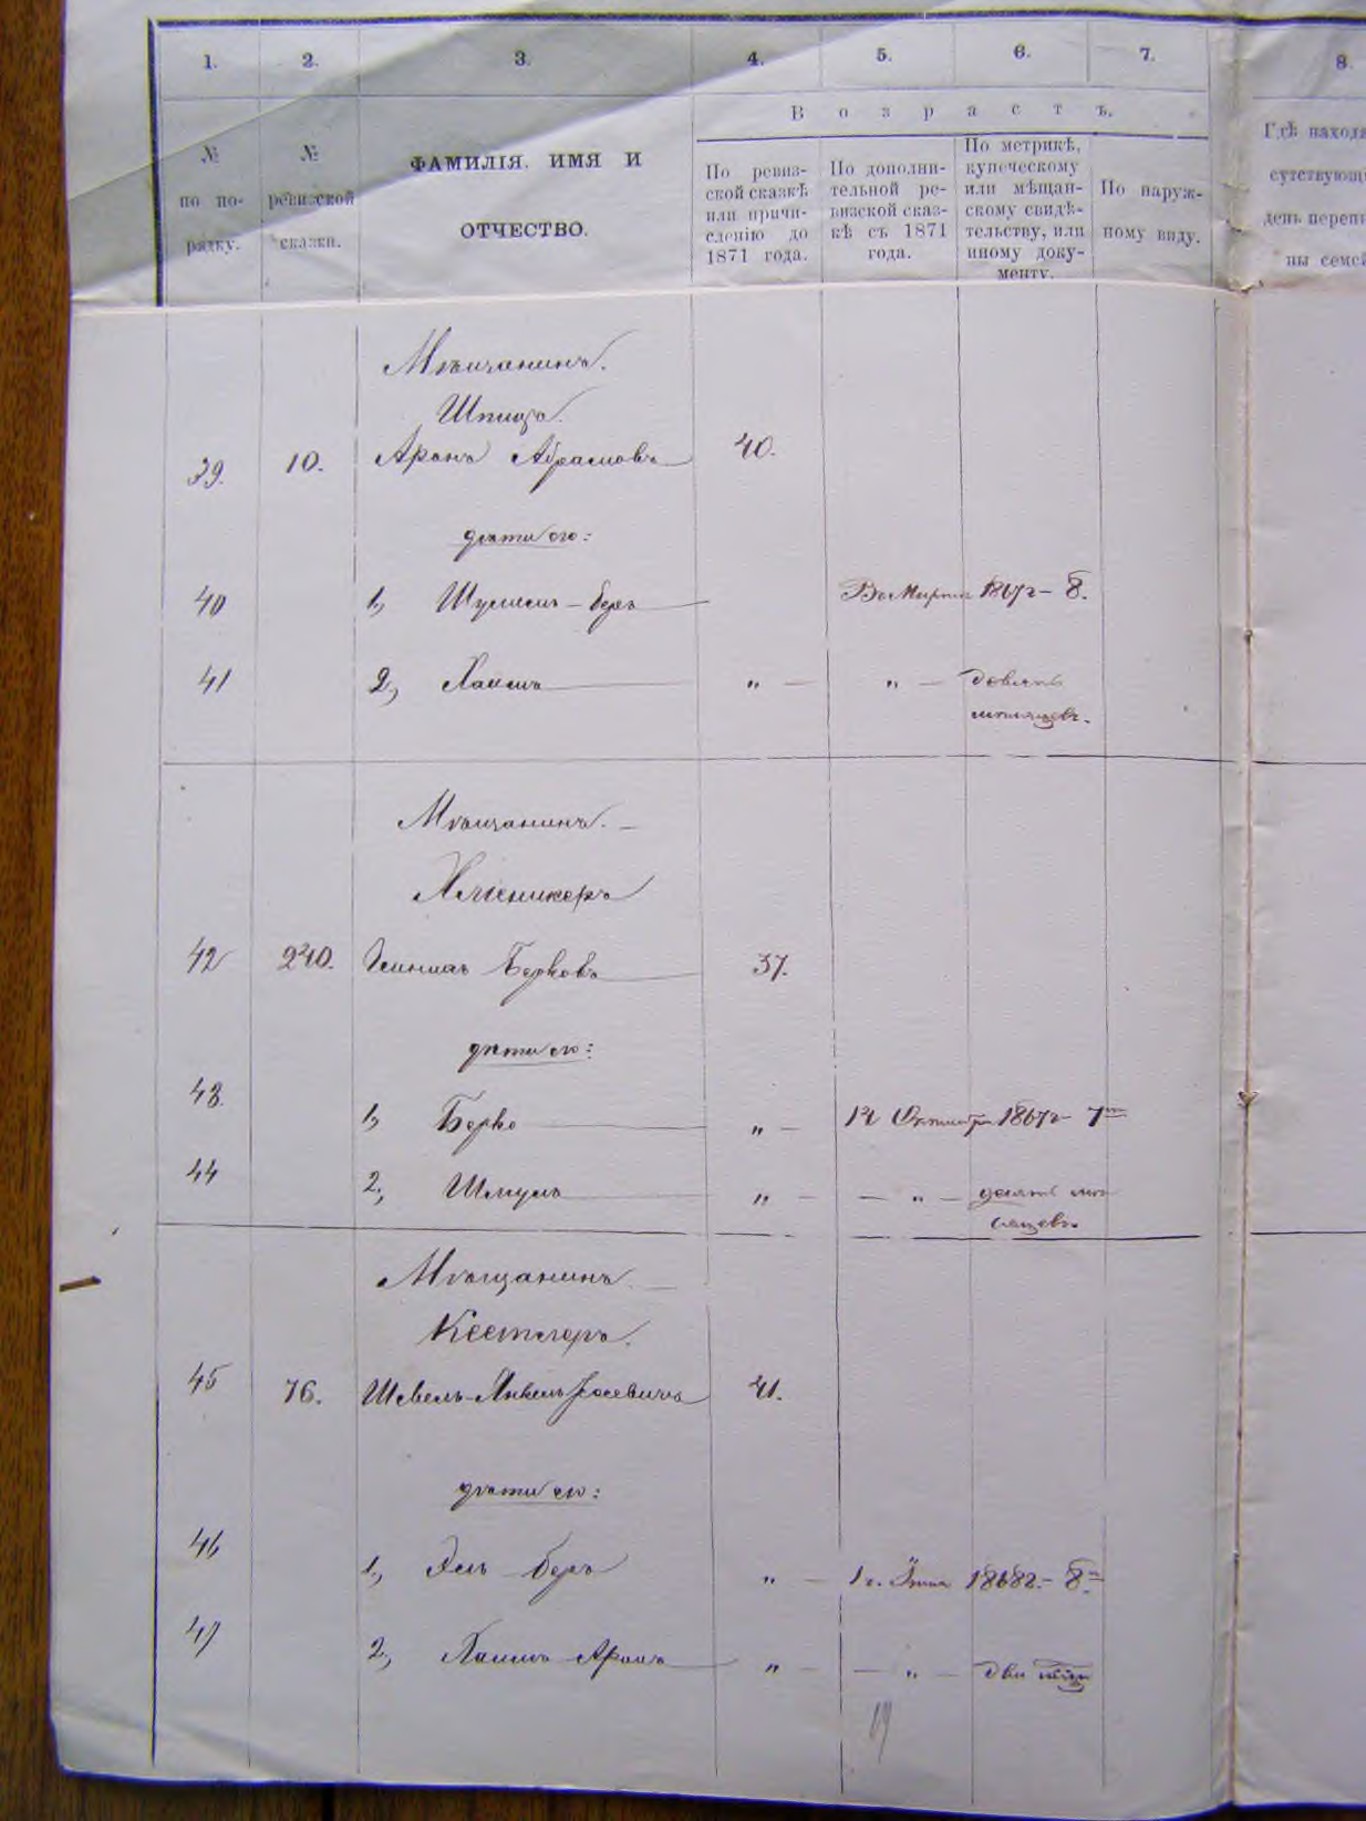 1. 2. 3. 4. 5. 6. 7. 8.
Возрастъ.
№ по по-
рядку.
№ ревизской
сказки.
ФАМИЛІЯ. ИМЯ И
ОТЧЕСТВО.
По ревиз-
ской сказкѣ
или причи-
сленію до
1871 года.
По дополни-
тельной ре-
визской сказ-
кѣ съ 1871
года.
По метрикѣ,
купеческому
или мѣщан-
скому свидѣ-
тельству, или
иному доку-
менту.
По наруж-
ному виду.
Гдѣ находя
сутствующі
день переп
ны семей
Мѣщанинъ.
Шпицъ.
39. 10. Аронъ Абрамовъ 40.
дѣти его:
40 1, Шулимъ-беръ Въ Мартѣ 1867 г – 8.
41 2, Хаимъ " — " — девять
мѣсяцевъ.
Мѣщанинъ. –
42 240. Берковъ 37.
дѣти его:
43. 1, Берко " – 12 Октября 1867 г – 7
44 2, Шмуль " – – " – девять мѣ
сяцевъ.
Мѣщанинъ
Кестлеръ.
45 76. Шевель-Янкель Іосевичъ 41.
дѣти его:
46 1, беръ " – 1 г. Іюля 1868 г. – 8
47 2, Хаимъ Аронъ " – – " – два года
19